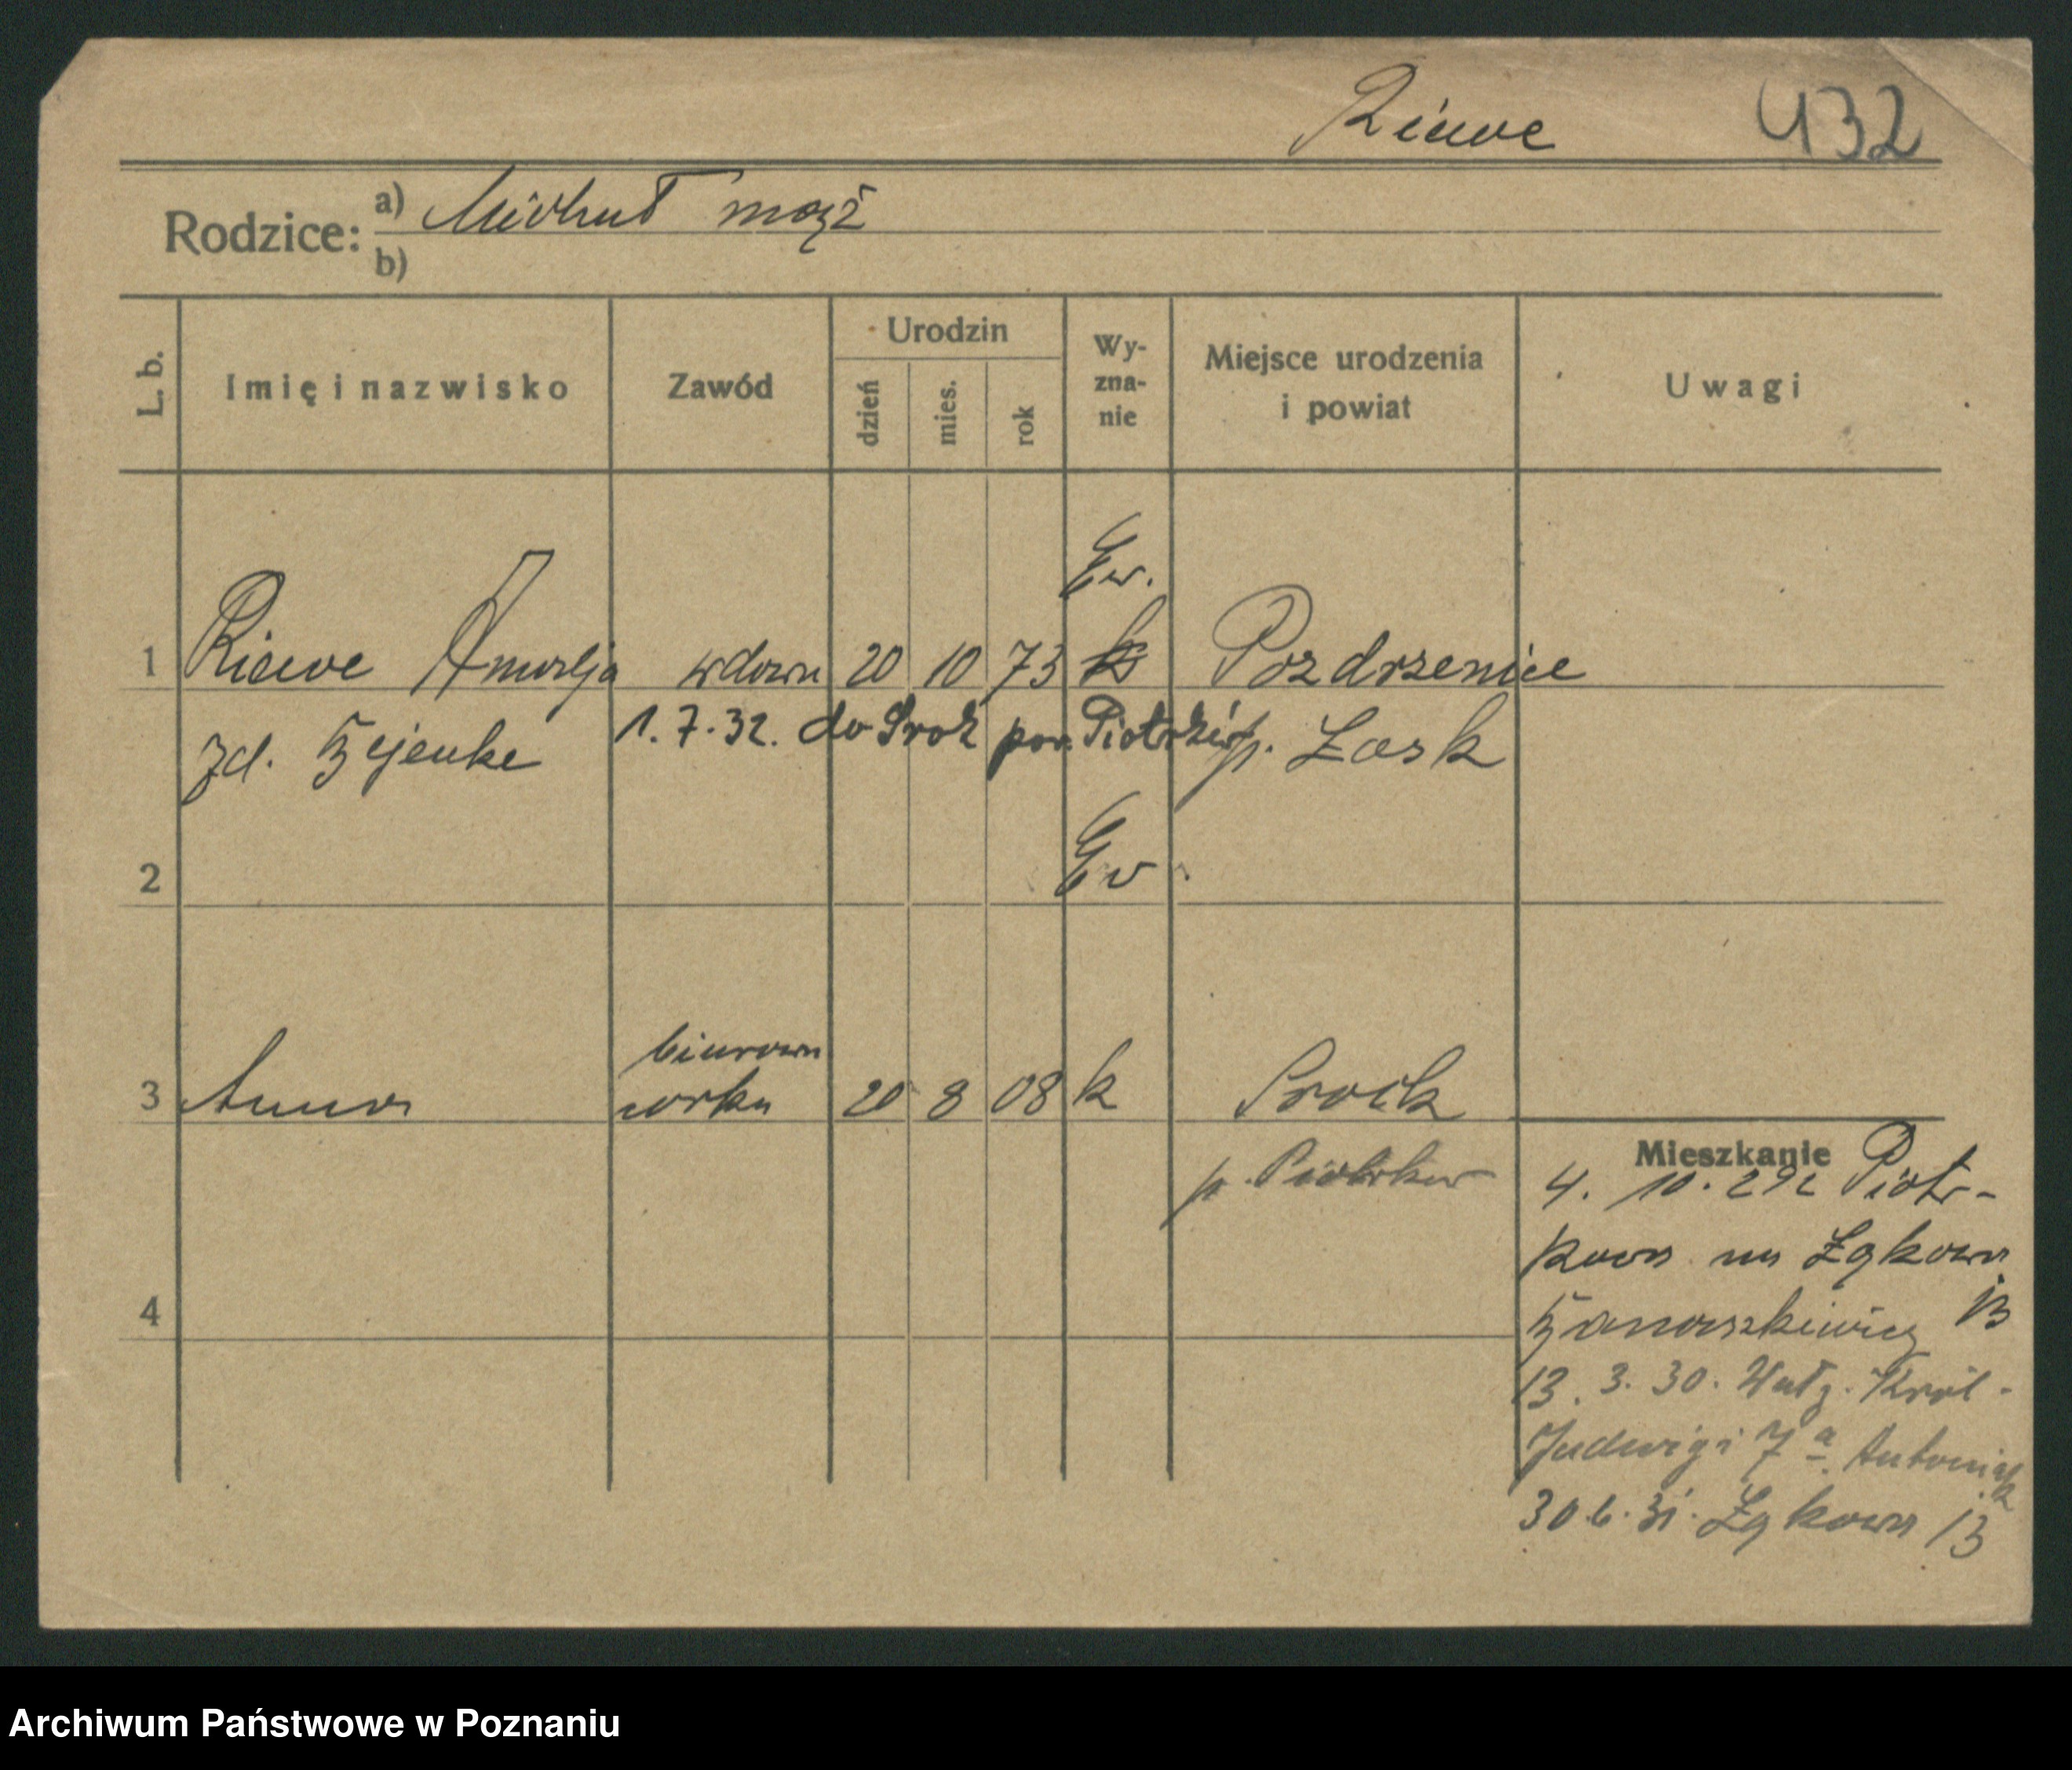 Riewe 432
Rodzice: a) Michał mąż
b)
L. b. Imię i nazwisko Zawód Urodzin dzień mies. rok Wy-zna-nie Miejsce urodzenia i powiat Uwagi
Ew.
1 Riewe Amalja wdowa 20 10 73 k Pozdrzenice
zd. Hejenke 1.7.32. do Srok pow. Piotrków p. Łask
2 Ew.
biurowa
3 Anna córka 20 8 08 k Srock
p. Piotrków
Mieszkanie
4. 10. 29 z Piotr-
kowa na Łąkowa
13
4
13. 3. 30. Król.
Jadwigi 7a Antoniak
30.6.31. Łąkowa 13
Archiwum Państwowe w Poznaniu